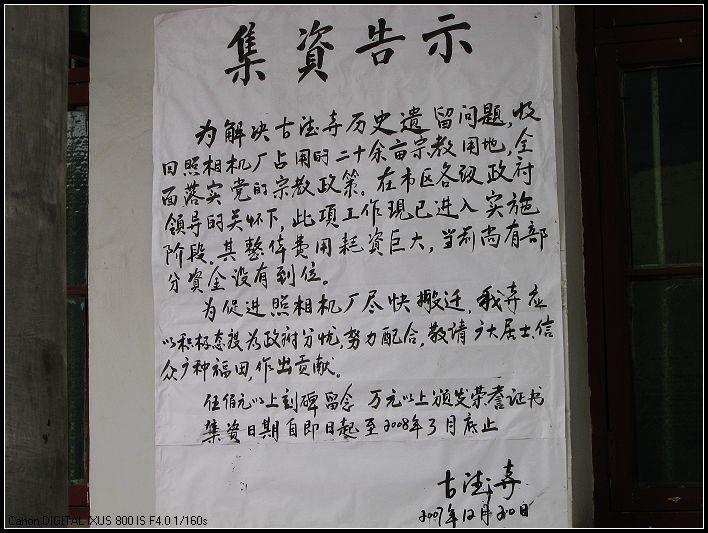 集資告示
为解决古德寺历史遗留问题,收
回照相机厂占用的二十余亩宗教用地,全
面落实党的宗教政策。在市区各级政府
领导的关怀下,此项工作現已进入实施
阶段。其整体費用耗資巨大,当前尚有部
分資金没有到位。
为促进照相机厂尽快搬迁,我寺应
以积极态度为政府分忧,努力配合,敬請广大居士、信
众广种福田,作出贡献。
伍佰元以上刻碑留念 万元以上頒发荣誉证书
集資日期自即日起至2008年3月底止
古德寺
2007年12月20日
Canon DIGITAL IXUS 800 IS F4.0 1/160s